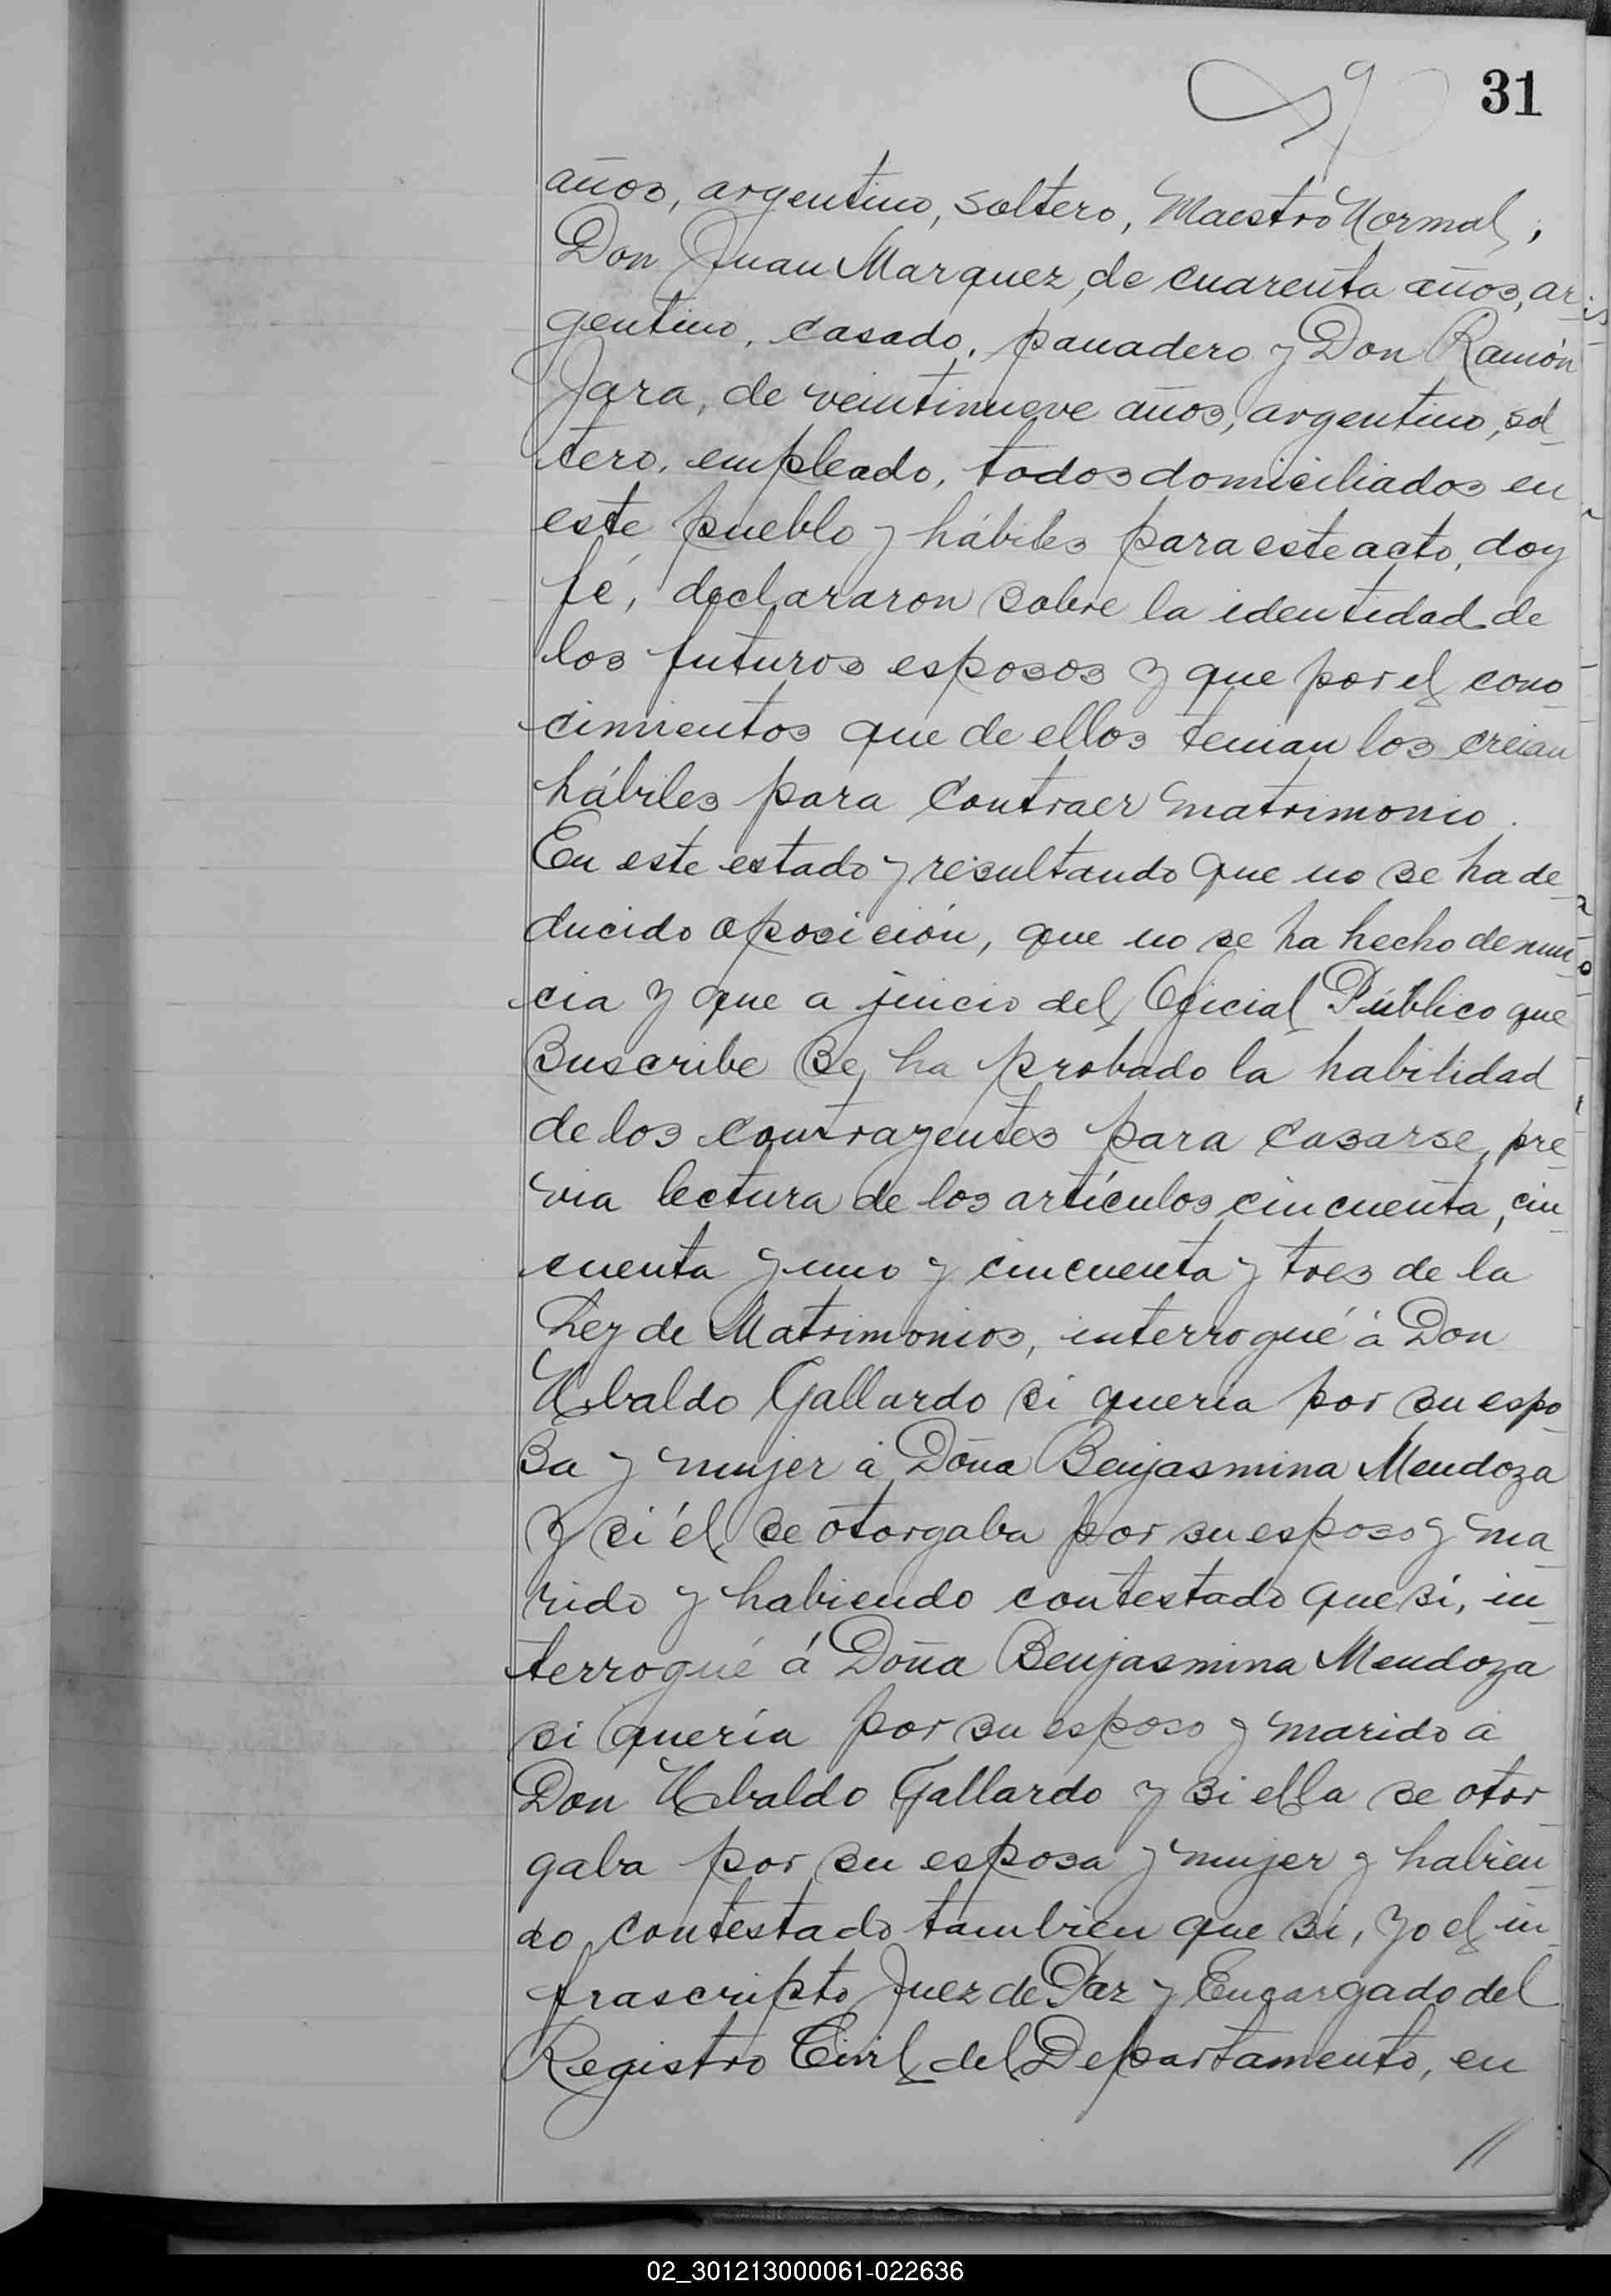 31
años, argentino, soltero, Maestro Normal,
Don Juan Marquez, de cuarenta años, ar-
gentino, casado, panadero y Don Ramón
Jara, de veintinueve años, argentino, sol-
tero, empleado, todos domiciliados en
este pueblo y hábiles para este acto, doy
fé, declararon sobre la identidad de
los futuros esposos y que por el cono-
cimientos que de ellos tenian los creian
hábiles para contraer matrimonio.
En este estado y resultando que no se ha de-
ducido oposición, que no se ha hecho denun-
cia y que a juicio del Oficial Público que
suscribe se ha probado la habilidad
de los contrayentes para casarse, pre-
via lectura de los artículos cincuenta, cin-
cuenta y uno y cincuenta y tres de la
Ley de Matrimonios, interrogué á Don
Ubaldo Gallardo si queria por su espo-
sa y mujer á Doña Benjasmina Mendoza
y si él se otorgaba por su esposo y ma-
rido y habiendo contestado que si, in-
terrogué á Doña Benjasmina Mendoza
si quería por su esposo y marido á
Don Ubaldo Gallardo y si ella se otor-
gaba por su esposa y mujer y habien-
do contestado tambien que si, yo el in-
frascripto Juez de Paz y Encargado del
Registro Civil del Departamento, en
//
02_301213000061-022636